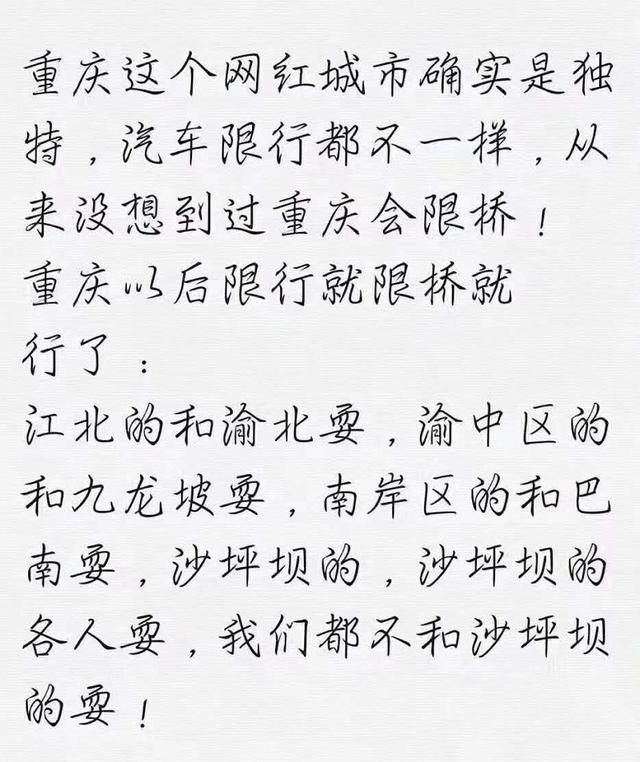 重庆这个网红城市确实是独
特，汽车限行都不一样，从
来没想到过重庆会限桥！
重庆以后限行就限桥就
行了：
江北的和渝北耍，渝中区的
和九龙坡耍，南岸区的和巴
南耍，沙坪坝的，沙坪坝的
各人耍，我们都不和沙坪坝
的耍！